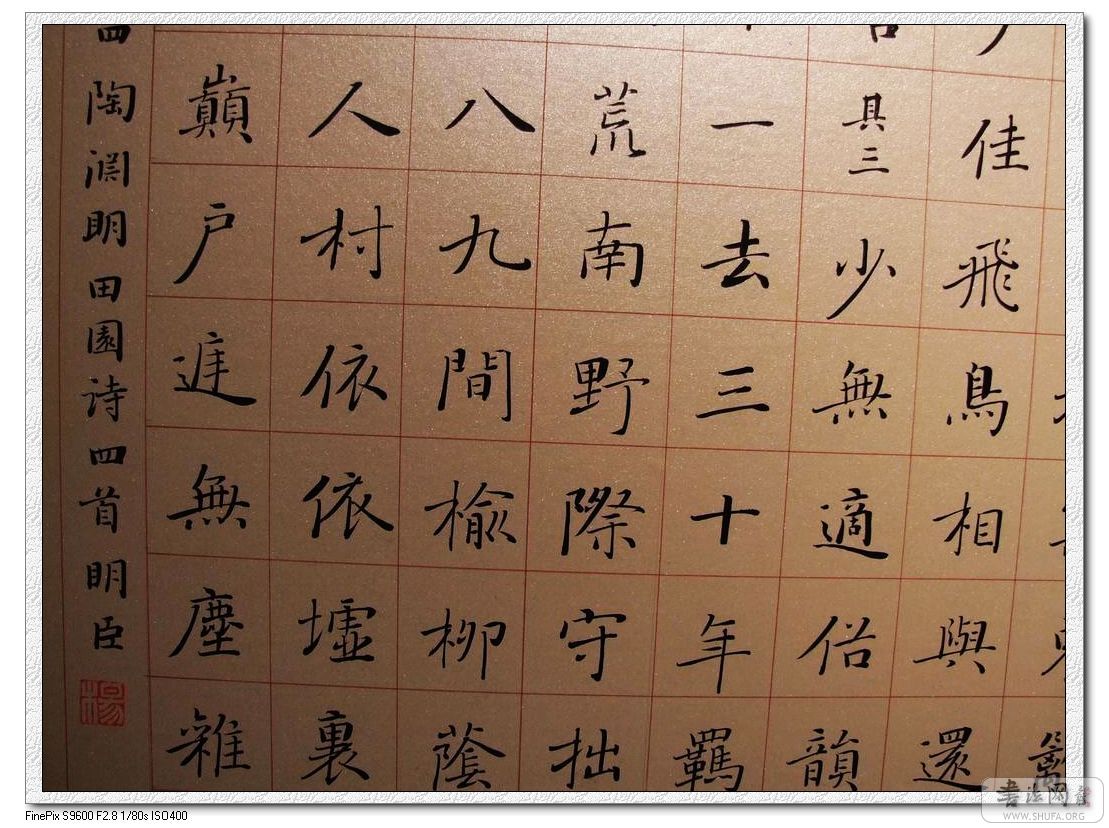 佳飛鳥相與還
其三少無適俗韻
一去三十年羈
荒南野際守拙
八九間榆柳蔭
人村依依墟裏
巔户庭無塵雜
陶渊明田園诗四首明臣
書法网
WWW.SHUFA.ORG
FinePix S9600 F2.8 1/80s ISO400